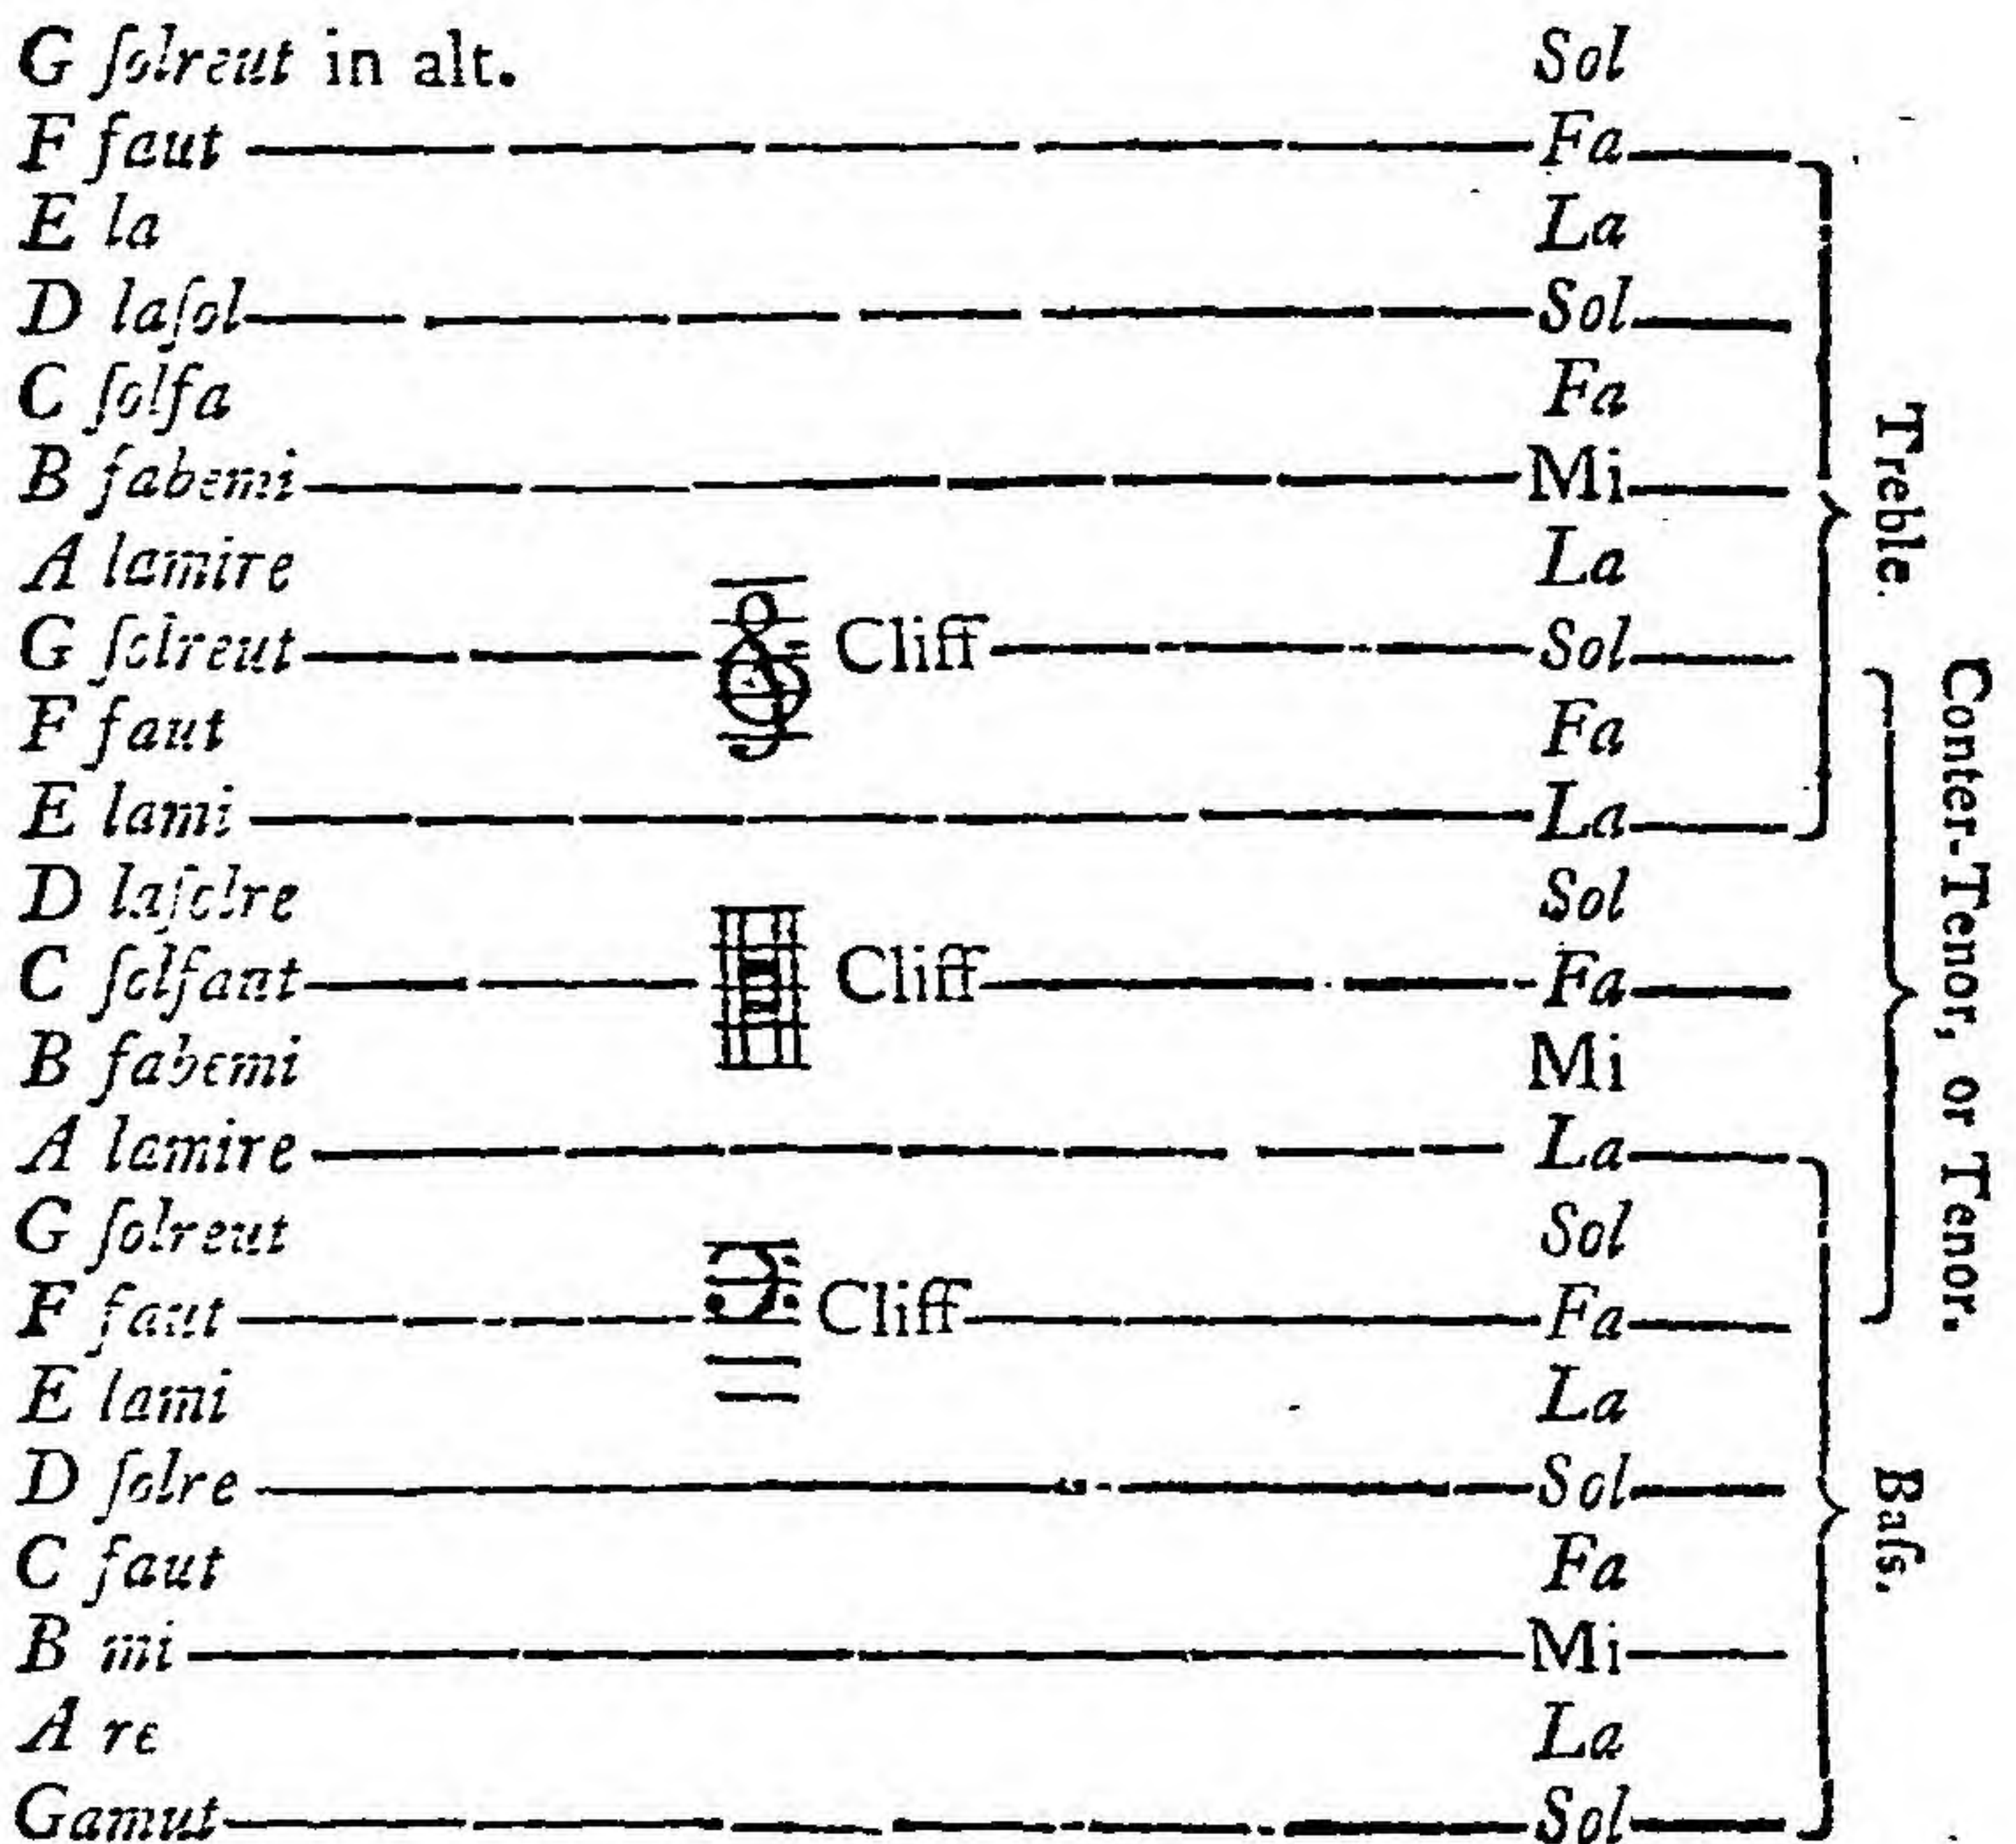 G ſolreut in alt. Sol
F faut Fa
E la La
D laſol Sol
C ſolfa Fa
B fabemi Mi
A lamire La
G ſolreut Cliff Sol
F faut Fa
E lami La
D laſolre Sol
C ſolfaut Cliff Fa
B fabemi Mi
A lamire La
G ſolreut Sol
F faut Cliff Fa
E lami La
D ſolre Sol
C faut Fa
B mi Mi
A re La
Gamut Sol
Treble.
Conter-Tenor, or Tenor.
Baſs.